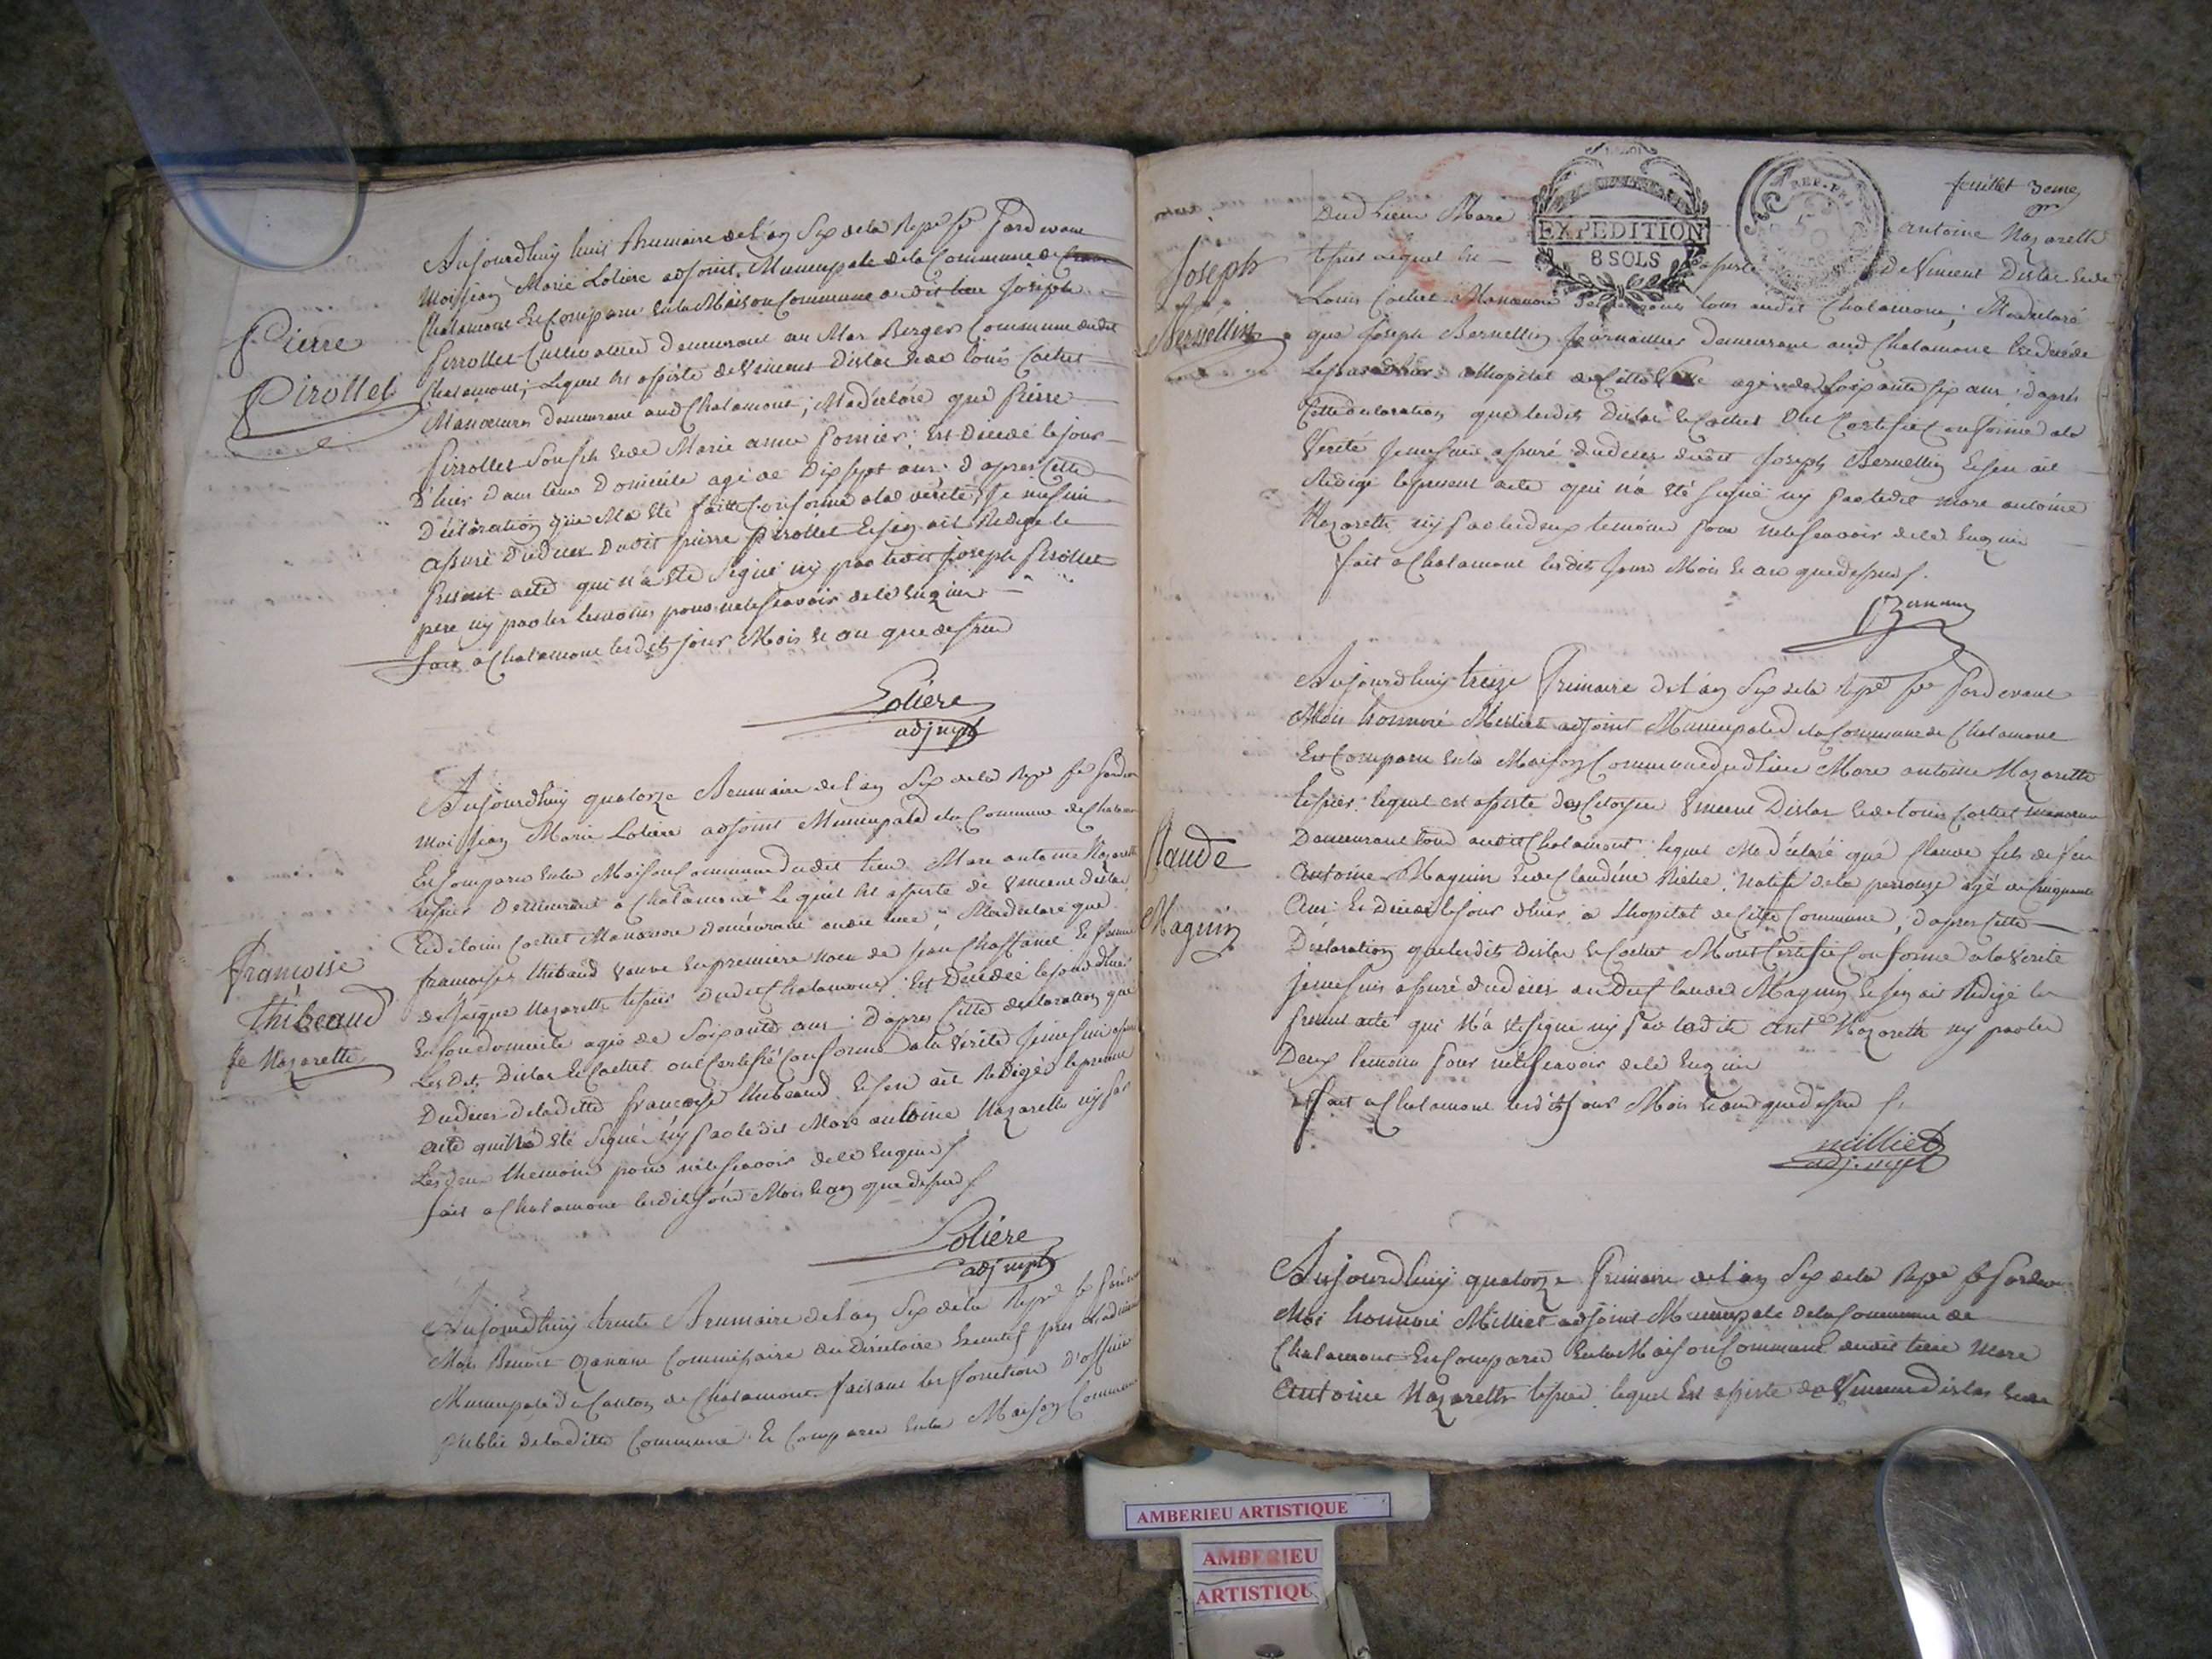 Pierre
Pirollet
Aujourdhuy huit Brumaire de l'an Six dela Repe fse Pardevant
Moi Jean Marie Loliere adjoint Municipale dela Commune de
Chalamont Est Comparu En la Maison Commune dudit lieu Joseph
Pirrollet Cultivateur Demeurant au Mas Berger Commune dudit
Chalamont; Lequel Est assisté de Vincent Dislas Et de louis Cochet
Manoeuvres demeurant aud Chalamont; Ma déclaré que Pierre
Pirrollet Son fils Et de Marie anne fornier: Est Decedé le jour
D'hier dans leur Domicile agé de Dix sept ans: D apres Cette
Déclaration qui M'a Eté faitte Conforme ala vérité, Je me suis
assuré du deces Dudit pierre pirollet Et j'en ait Redigé le
Present acte qui n'a Eté Signé ny par ledit Joseph Pirollet
pere ny par les temoins pour ne le Scavoir dele Enquis
fait a Chalamont lesdits jour Mois Et an que dessus
Loliere
adj mpl
Françoise
thibeaud
fe Nazareth
Aujourdhuy quatorze Brumaire de l'an Six dela Repe fse Pardev
Moi Jean Marie Loliere adjoint Municipale dela Commune de Chalam
Est Comparu En la Maison Commune dudit lieu Marc antoine Nazareth
tessier Demeurant a Chalamont Lequel Est assisté de Vincent dislas
Et de louis Cochet Manoeuvre demeurant audit lieu; Ma declaré que
françoise thibaud veuve En premiere noce de Jean Et femme
Nazareth tessier dudit Chalamont: Est Decedée le jour d'hier
En son domicile agée de Soixante ans: D'apres Cette declaration que
Lesdits Dislas Et Cochet ont Certifié Conforme ala Vérité Je me suis
Du deces de laditte françoise thibeaud Et j'en ait Redigé le present
acte qui n'a Eté Signé ny par ledit Marc antoine Nazareth ny par
Les deux themoins pour ne le Scavoir dele Enquis
fait a Chalamont lesdits jour Mois Et an que dessus
Loliere
adj mpl
Aujourdhuy trente Brumaire de l'an Six dela Repe fse
Moi Benoit Ozanam Commissaire du Directoire Executif pres
Municipale du Canton de Chalamont faisant les fonction d'officier
public de laditte Commune Est Comparu En la Maison Commune
feuillet 3eme
EXPEDITION
8 SOLS
REP. FR
Joseph
Bernellin
Dud Lieu Marc antoine Nazareth
tessier lequel Est assisté de Vincent Dislas Et de
Louis Cochet Manoeuvre demeurant tous audit Chalamont; Ma declaré
que Joseph Bernellin Journaillier Demeurant aud Chalamont Est decedé
a Lhopital de Cette agé de Soixante six ans: d'apres
Cette declaration que lesdits dislas Et Cochet Ont Certifié Conforme ala
Vérité Je me suis assuré du deces dudit Joseph Bernellin Et j'en ait
Redigé le present acte qui n'a Eté signé ny par ledit Marc antoine
Nazareth ny par les deux temoins pour ne le Scavoir dele Enquis
fait a Chalamont lesdits Jour Mois Et an que dessus
Ozanam
Claude
Maguin
Aujourdhuy treize Frimaire de l'an Six dela Repe fse Pardevant
Moi honnoré Milliet adjoint Municipale dela Commune de Chalamont
Est Comparu En la Maison Commune dud Lieu Marc antoine Nazareth
tessier: lequel est assisté des Citoyen Vincent Dislas Et de louis Cochet manoeuvre
Demeurant tous audit Chalamont: lequel Ma déclaré que Claude fils de feu
Antoine Maguin Et de Claudine natif de la perouze agé de Cinquante
Ans: Est Decedé le jour d'hier a Lhopital de Cette Commune; d'apres Cette
Déclaration que lesdits Dislas Et Cochet Mont Certifié Conforme ala Vérité
je me suis assuré du deces dudit Claude Maguin Et j'en ait Redigé le
present acte qui N'a Eté signé ny par ledit ante Nazareth ny par les
Deux temoins pour ne le Scavoir dele Enquis
fait a Chalamont lesdits jour Mois Et an que dessus
milliet
adj. mpl
Aujourdhuy quatorze Frimaire de l'an Six dela Repe fse Pardev
Moi honnoré Milliet adjoint Municipale dela Commune de
Chalamont Est Comparu En la Maison Commune dudit lieu Marc
Antoine Nazareth tessier lequel Est assisté de Vincent dislas Et de
AMBERIEU ARTISTIQUE
AMBERIEU
ARTISTIQU